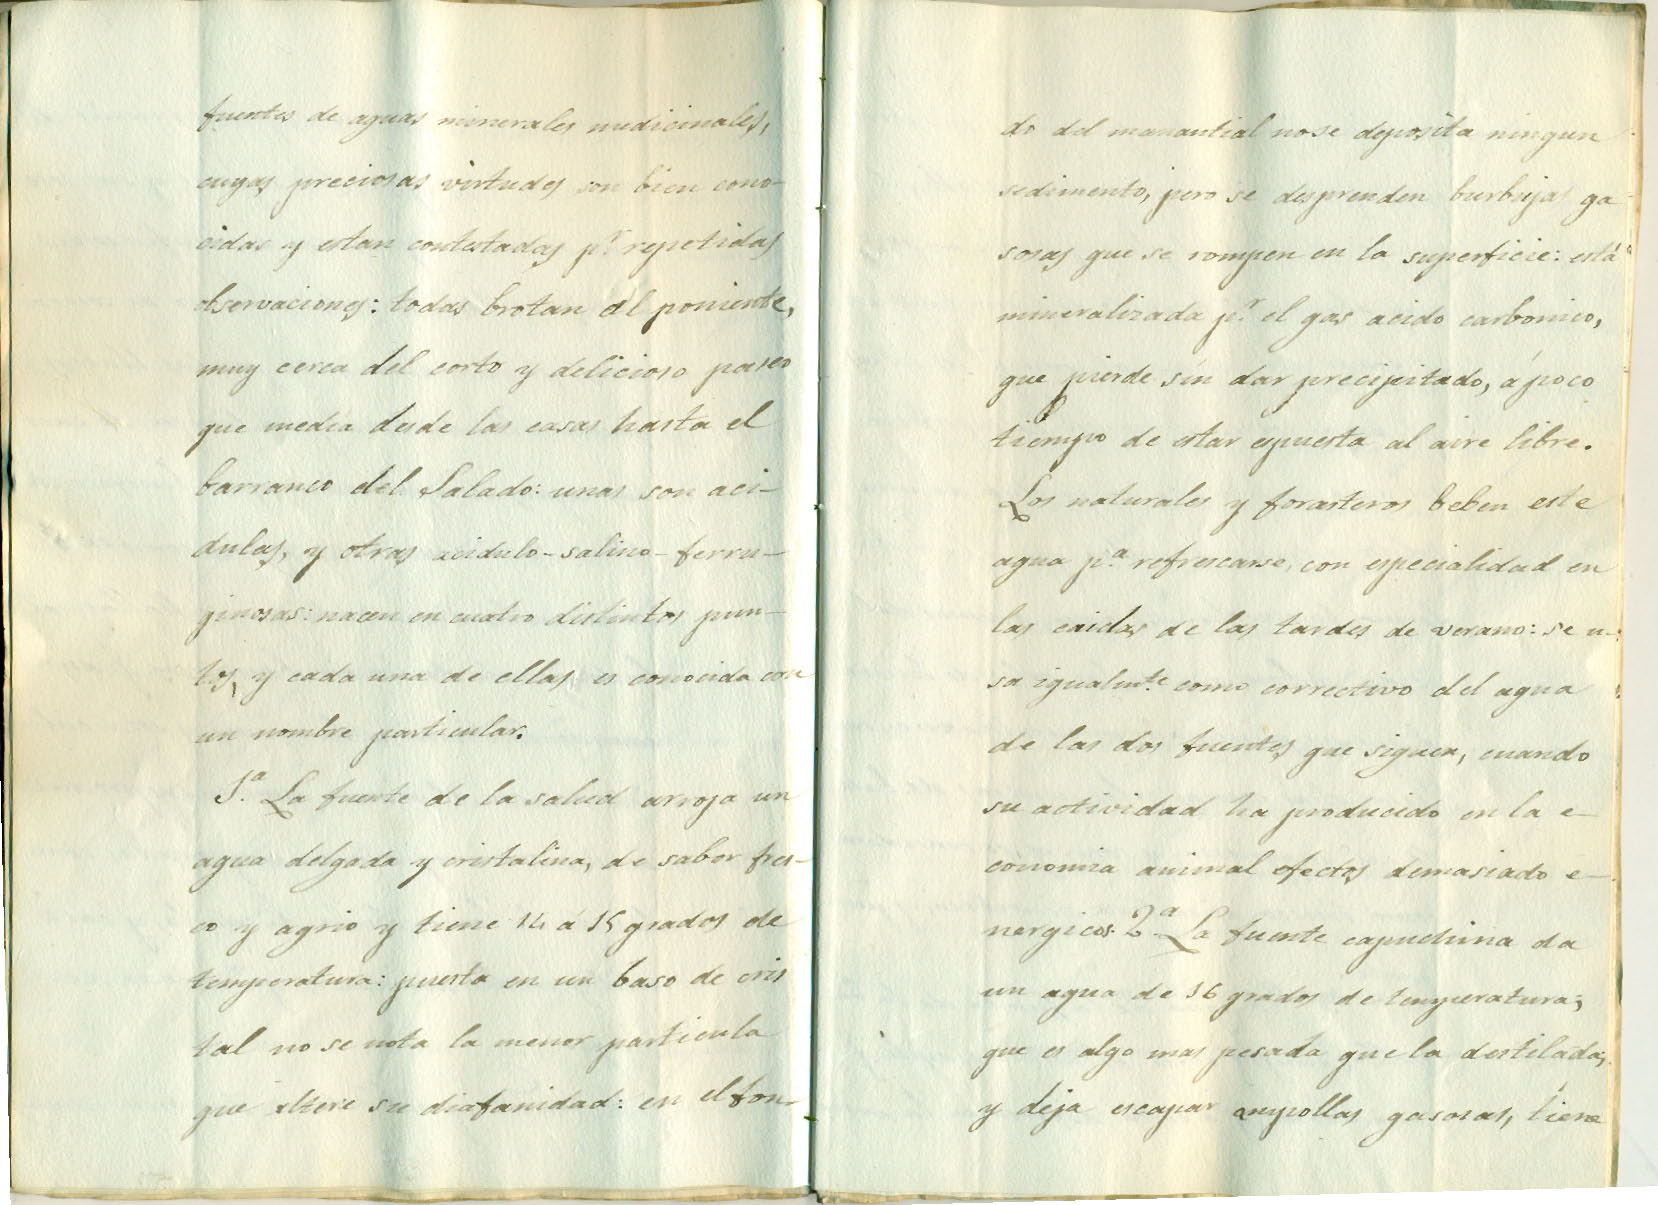 fuentes de aguas minerales medicinales,
cuyas preciosas virtudes son bien cono-
cidas y estan contestadas p.r repetidas
observaciones: todas brotan al poniente,
muy cerca del corto y delicioso paseo
que media desde las casas hasta el
barranco del Salado: unas son aci-
dulas, y otras acidulo-salino-ferru-
ginosas: nacen en cuatro distintos pun-
tos, y cada una de ellas es conocida con
un nombre particular.
1.a La fuente de la salud arroja un
agua delgada y cristalina, de sabor fres-
co y agrio y tiene 14 á 15 grados de
temperatura: puesta en un baso de cris
tal no se nota la menor particula
que altere su diafanidad: en el fon-
do del manantial no se deposita ningun
sedimento, pero se desprenden burbujas ga-
sosas que se rompen en la superficie: está
mineralizada p.r el gas acido carbonico,
que pierde sin dar precipitado, á poco
tiempo de estar espuesta al aire libre.
Los naturales y forasteros beben este
agua p.a refrescarse, con especialidad en
las caidas de las tardes de verano: se u-
sa igualm.te como correctivo del agua
de las dos fuentes que siguen, cuando
su actividad ha producido en la e-
conomia animal efectos demasiado e-
nergicos. 2.a La fuente capuchina da
un agua de 16 grados de temperatura;
que es algo mas pesada que la destilada;
y deja escapar ampollas gasosas, tiene